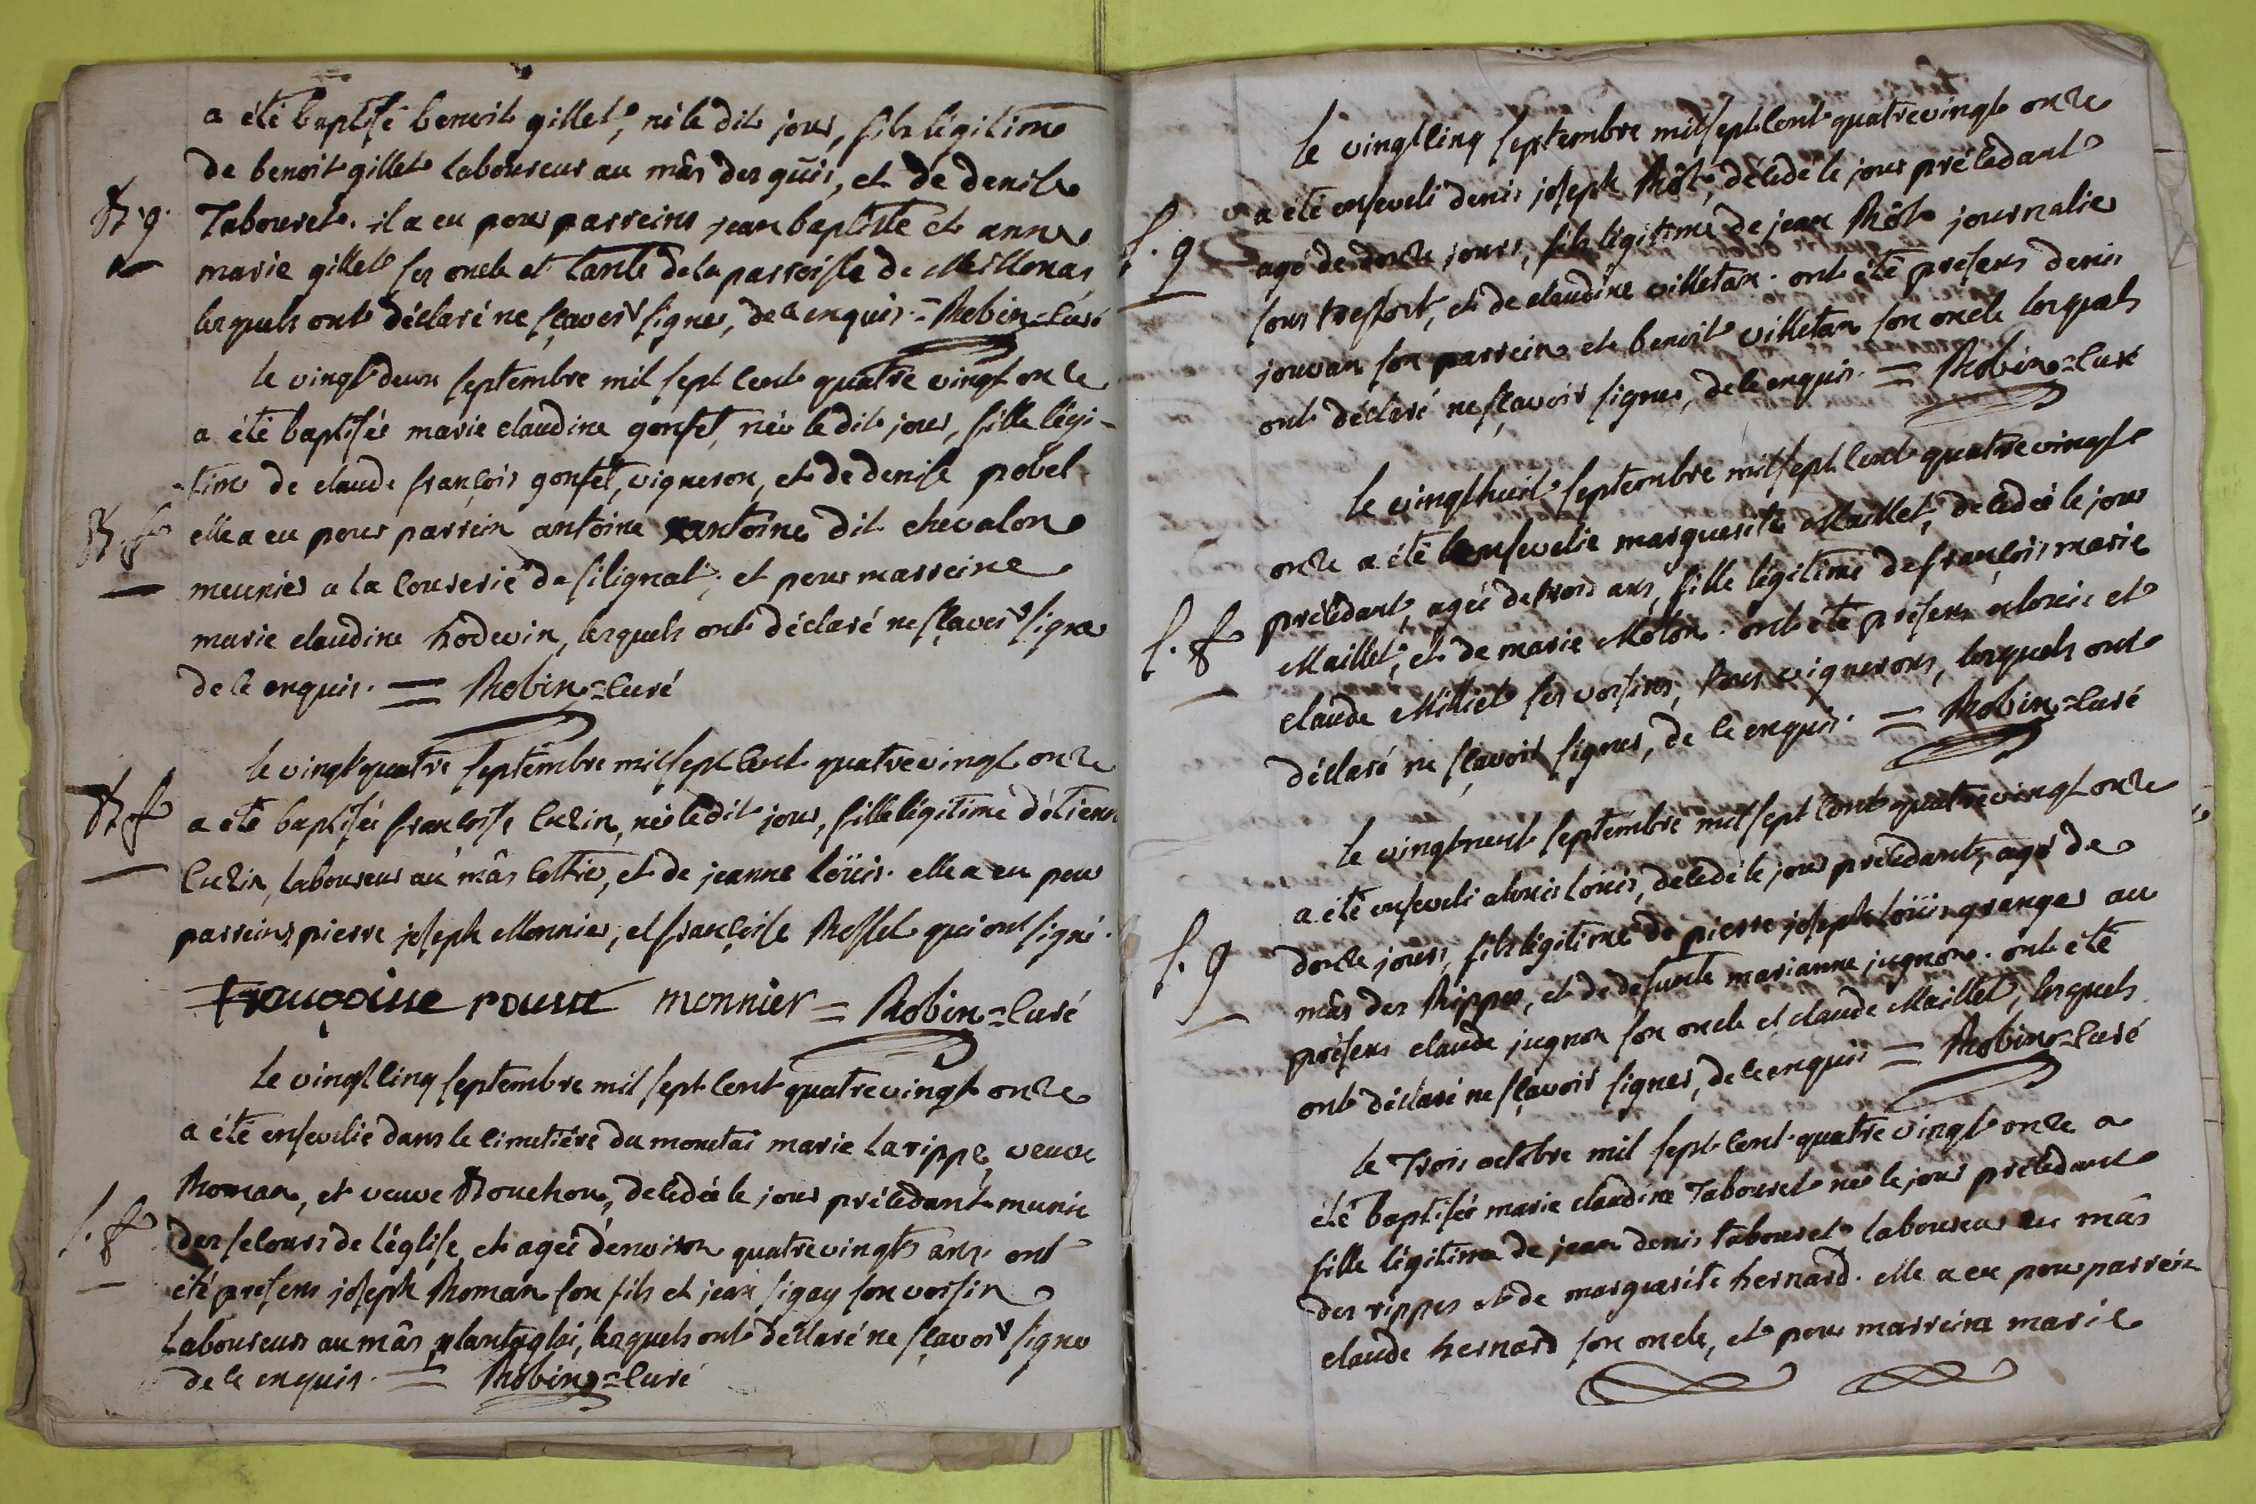 a été baptisé benoit gillet, né le dit jour, fils légitime
de benoit gillet laboureur au mâs des guis, et de denise
B. g. Tabouret. il a eu pour parreins jean baptiste et anne
marie gillet ses oncle et tante de la parroisse de Meillonas
lesquels ont déclaré ne sçavoir signer, de ce enquis. = Robin=curé
le vingt deux septembre mil sept cent quatre vingt onze
a été baptisée marie claudine gonset, née le dit jour, fille légi-
time de claude françois gonset, vigneron, et de denise pobel
B. f elle a eu pour parrein antoine antoine dit chevalon
meunier a la courerie de silignat, et pour marreine
marie claudine hodevin, lesquels ont déclaré ne sçavoir signer
de ce enquis. = Robin=curé
le vingt quatre septembre mil sept cent quatre vingt onze
B. f a été baptisée françoise Cuzin, née le dit jour, fille légitime d'étienne
Cuzin, laboureur au mâs , et de jeanne loüis. elle a eu pour
parreins pierre joseph Monnier, et françoise Rosset qui ont signé.
françoise monnier = Robin=curé
le vingt cinq septembre mil sept cent quatre vingt onze
a été ensevelie dans le cimetiére du monetai marie larippe, veuve
Roman, et veuve Bouchon, decedée le jour précedant munie
S. f des secours de l'église, et agée d'environ quatre vingts ans. ont
été presens joseph Roman son fils et jean sigay son voisin
laboureurs au mâs plantaglai, lesquels ont déclaré ne sçavoir signer
de ce enquis. = Robin=curé
le vingt cinq septembre mil sept cent quatre vingt onze
a été enseveli denis joseph Rôt, décédé le jour précedant
S. g agé de douze jours, fils légitime de jean Rôt journalier
sous tresfort, et de claudine villetan. ont été presens denis
jouvan son parrein et benoit villetan son oncle lesquels
ont déclaré ne sçavoir signer, de ce enquis. = Robin=curé
le vingt huit septembre mil sept cent quatre vingt
onze a été ensevelie marguerite Maillet, decedée le jour
précedant, agée de trois ans, fille légitime de françois marie
S. f Maillet, et de marie Moton. ont été présens alexis et
claude Milliet ses voisins, tous vignerons, lesquels ont
déclaré ne sçavoir signer, de ce enquis. = Robin=curé
le vingt neuf septembre mil sept cent quatre vingt onze
a été enseveli alexis loüis, decedé le jour précedant, agé de
S. g douze jours, fils légitime de pierre joseph loüis granger au
mâs des Rippes, et de defunte marianne jugnon. ont été
présens claude jugnon son oncle et claude Maillet, lesquels
ont déclaré ne sçavoir signer, de ce enquis = Robin=curé
le Trois octobre mil sept cent quatre vingt onze a
été baptisée marie claudine Tabouret née le jour précedant
fille légitime de jean denis tabouret laboureur au mâs
des rippes et de marguerite hernard. elle a eu pour parrein
claude hernard son oncle, et pour marreine marie